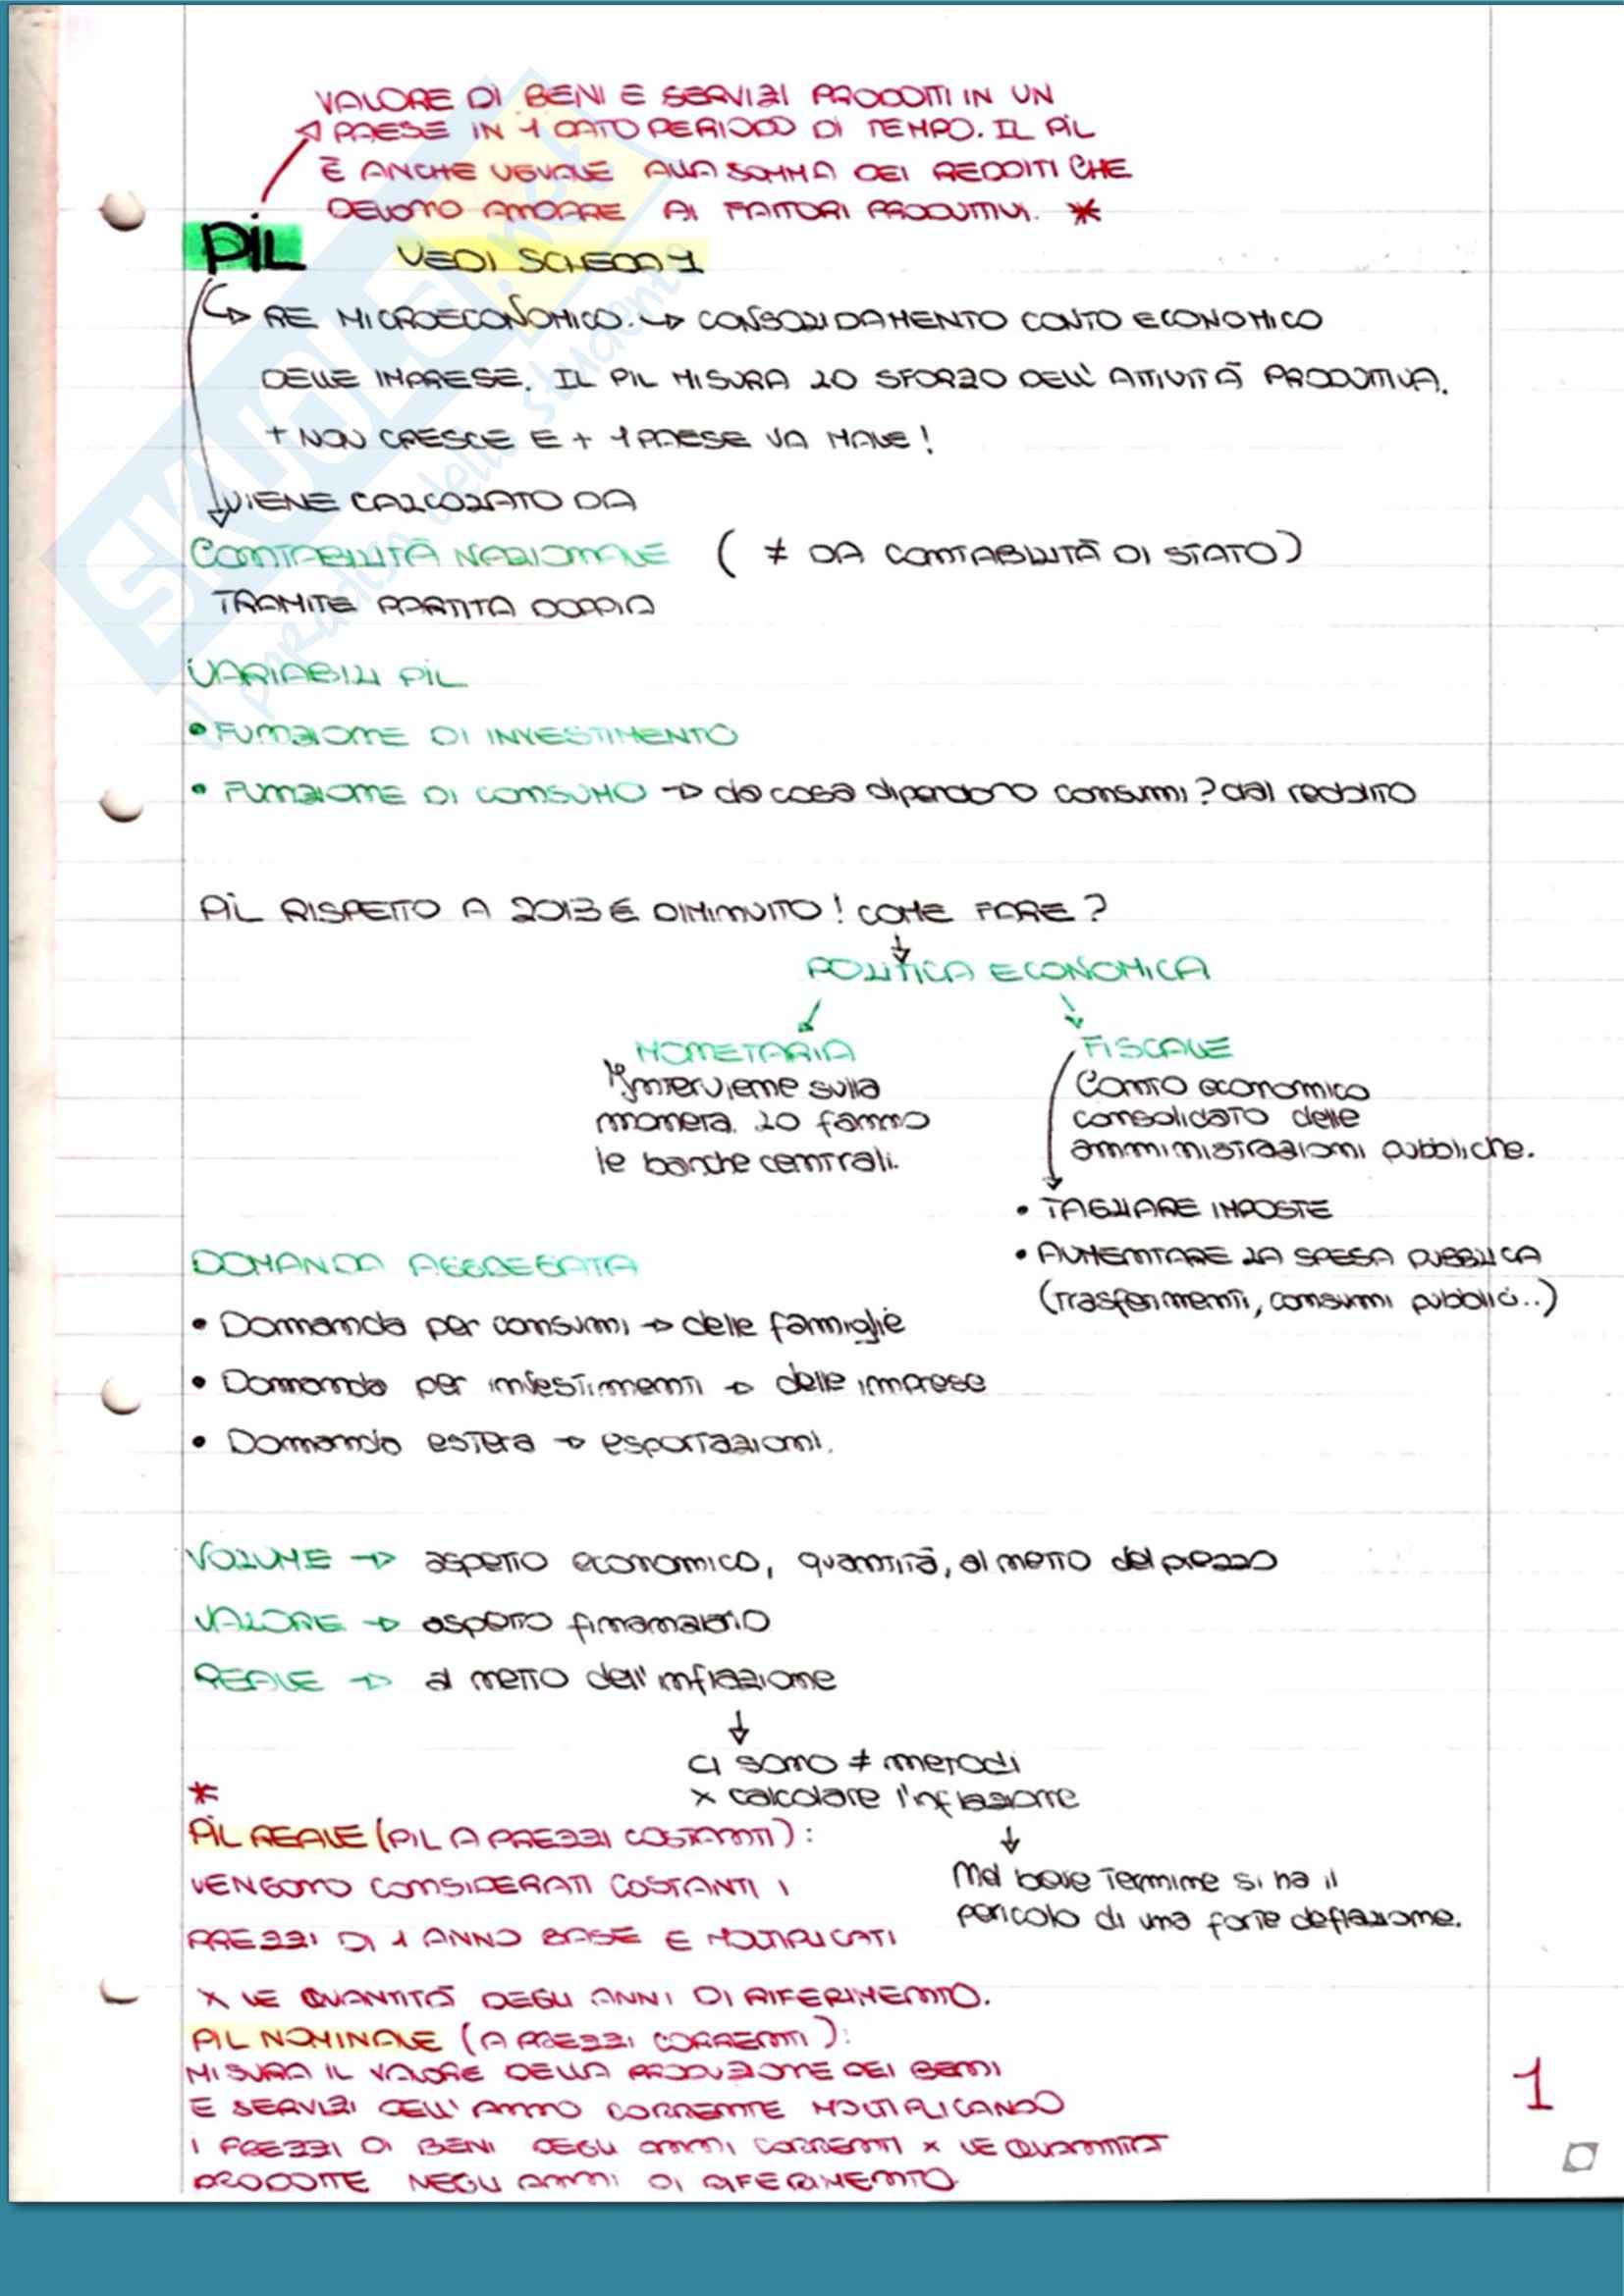 VALORE DI BENI E SERVIZI PRODOTTI IN UN
PAESE IN 1 DATO PERIODO DI TEMPO. IL PIL
È ANCHE UGUALE ALLA SOMMA DEI REDDITI CHE
DEVONO ANDARE AI FATTORI PRODUTTIVI. *
PIL VEDI SCHEDA 1
↳ RE MICROECONOMICO. ↳ CONSOLIDAMENTO CONTO ECONOMICO
DELLE IMPRESE. IL PIL MISURA LO SFORZO DELL'ATTIVITÀ PRODUTTIVA.
+ NON CRESCE E + 1 PAESE VA MALE!
VIENE CALCOLATO DA
CONTABILITÀ NAZIONALE ( ≠ DA CONTABILITÀ DI STATO)
TRAMITE PARTITA DOPPIA
VARIABILI PIL
• FUNZIONE DI INVESTIMENTO
• FUNZIONE DI CONSUMO → da cosa dipendono consumi? dal reddito
PIL RISPETTO A 2013 È DIMINUITO! COME FARE?
↓
POLITICA ECONOMICA
MONETARIA
Interviene sulla
moneta. Lo fanno
le banche centrali.
FISCALE
Conto economico
consolidato delle
amministrazioni pubbliche.
• TAGLIARE IMPOSTE
• AUMENTARE LA SPESA PUBBLICA
(trasferimenti, consumi pubblici..)
DOMANDA AGGREGATA
• Domanda per consumi → delle famiglie
• Domanda per investimenti → delle imprese
• Domanda estera → esportazioni.
VOLUME → aspetto economico, quantità, al netto del prezzo
VALORE → aspetto finanziario
REALE → al netto dell'inflazione
↓
ci sono ≠ metodi
x calcolare l'inflazione
↓
Nel breve termine si ha il
pericolo di una forte deflazione.
*
PIL REALE (PIL A PREZZI COSTANTI):
VENGONO CONSIDERATI COSTANTI I
PREZZI DI 1 ANNO BASE E MOLTIPLICATI
X LE QUANTITÀ DEGLI ANNI DI RIFERIMENTO.
PIL NOMINALE (A PREZZI CORRENTI):
MISURA IL VALORE DELLA PRODUZIONE DEI BENI
E SERVIZI DELL'ANNO CORRENTE MOLTIPLICANDO
I PREZZI DI BENI DEGLI ANNI CORRENTI X LE QUANTITÀ
PRODOTTE NEGLI ANNI DI RIFERIMENTO
1
SKUOLA.net
il paradiso dello studente